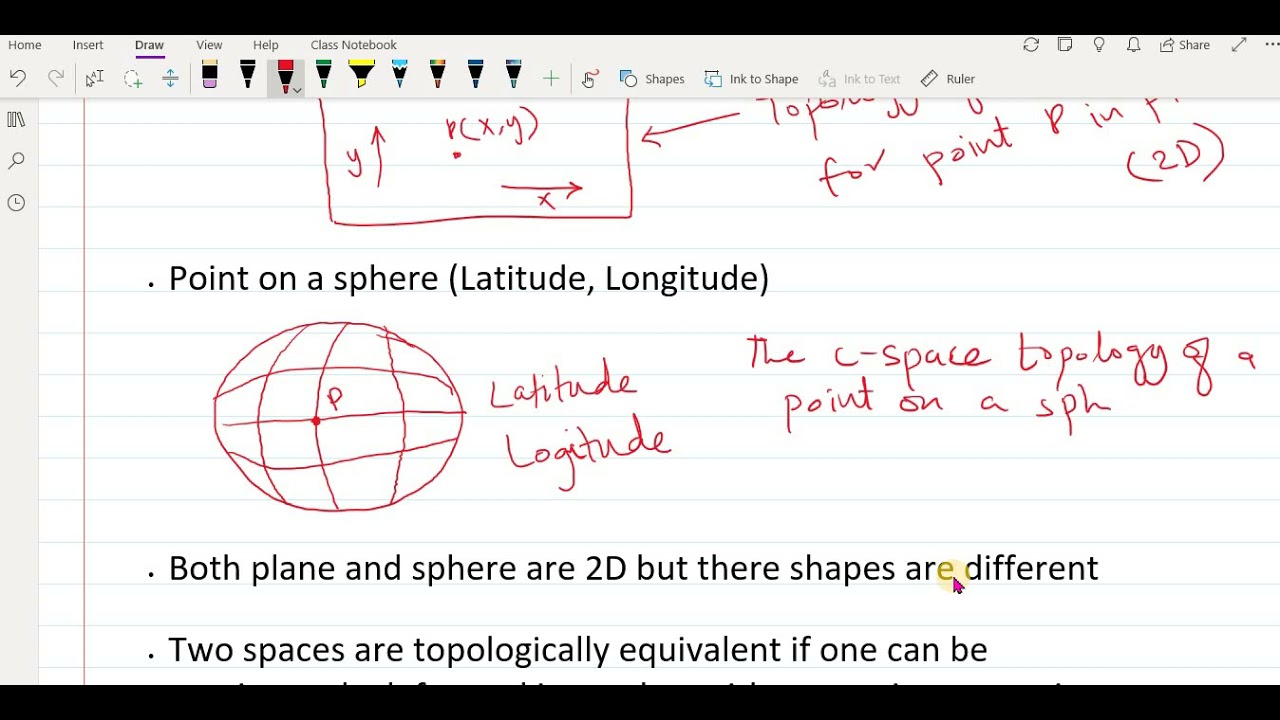 Home Insert Draw View Help Class Notebook Share
Shapes Ink to Shape Ink to Text Ruler
P(x,y)
y
x
for point P in
(2D)
Point on a sphere (Latitude, Longitude)
P
Latitude
Logitude
The c-space topology of a
point on a sph
Both plane and sphere are 2D but there shapes are different
Two spaces are topologically equivalent if one can be